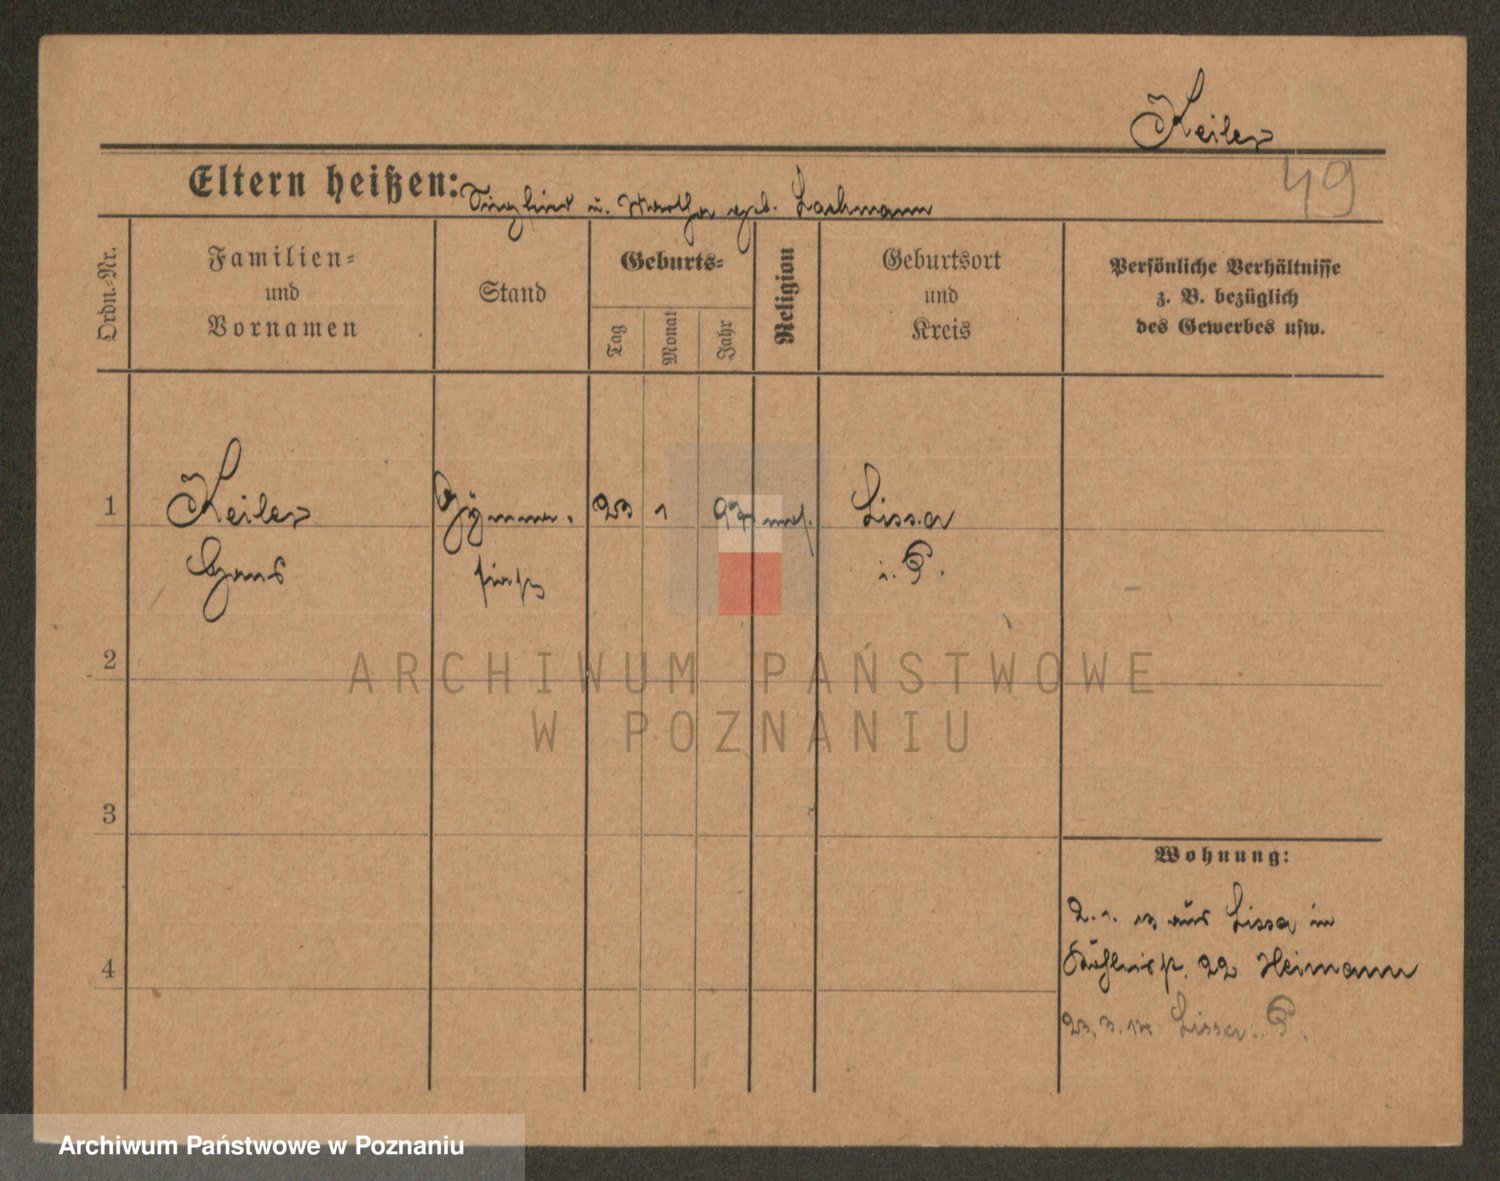 Keiler
49
Eltern heißen: Siegfried u. Martha geb. Lachmann
Ordn.-Nr.
Familien-
und
Vornamen
Stand
Geburts-
Tag
Monat
Jahr
Religion
Geburtsort
und
Kreis
Persönliche Verhältnisse
z. B. bezüglich
des Gewerbes usw.
1
Keiler
Hans
Gymna-
siast
23 1 97 mos.
Lissa
i. P.
2
ARCHIWUM PAŃSTWOWE
W POZNANIU
3
4
Wohnung:
2. 1. 13 aus Lissa in
22 Heimann
23. 3. 14 Lissa i. P.
Archiwum Państwowe w Poznaniu